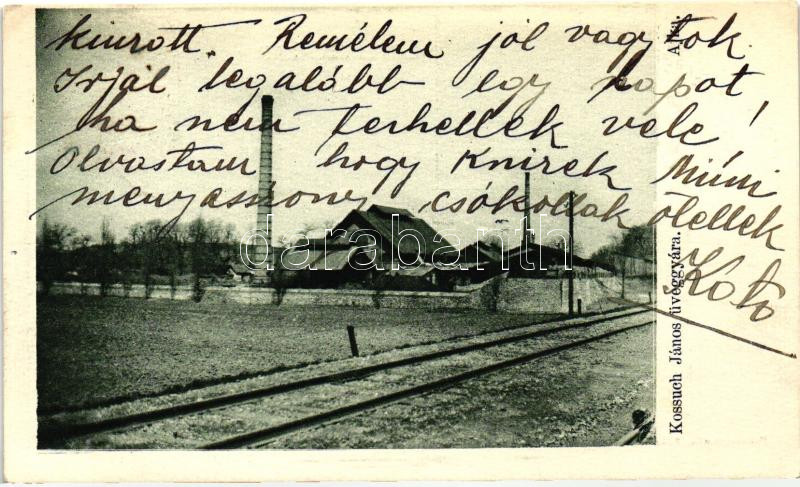 kinrott. Remélem jól vagytok.
Irjál legalább egy lapot
ha nem terhellek vele!
Olvastam hogy Knirek Múmi
menyasszony, csókollak ölellek
Kató
Kossuch János üveggyára.
darabanth